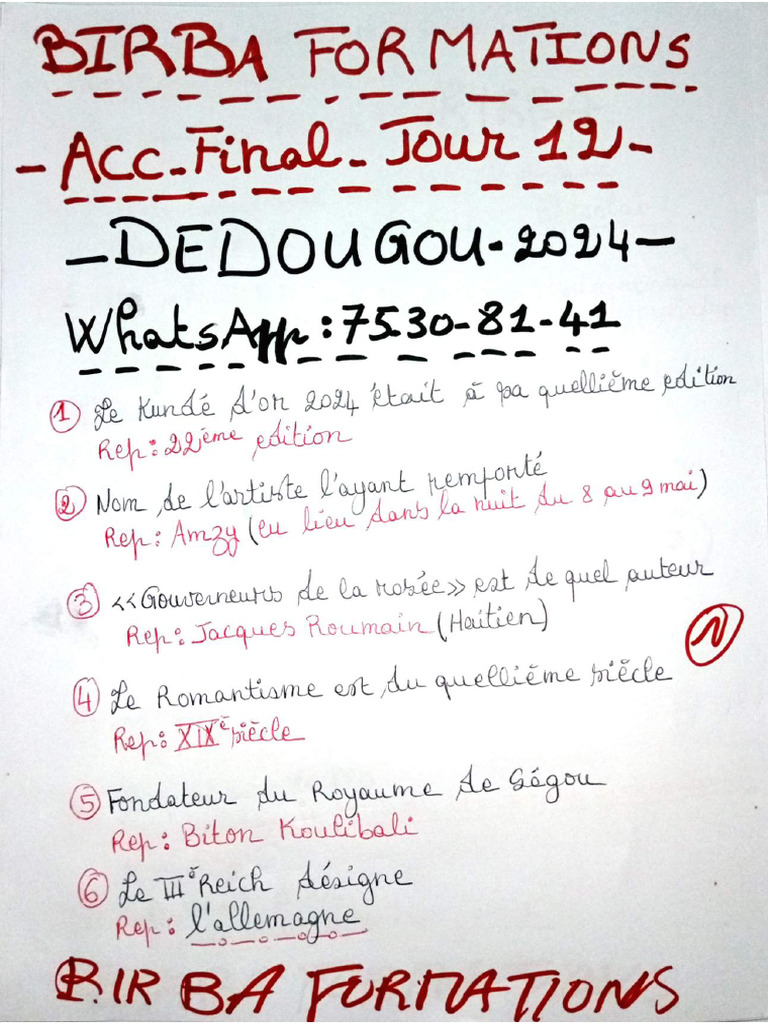 BIRBA FORMATIONS
- Acc-Final-Jour 12-
-DEDOUGOU-2024-
WhatsApp:75.30-81-41
1 Le Kundé d'or 2024 était à sa quellième edition
Rep: 22ème edition
2 Nom de l'artiste l'ayant remporté
Rep: Amzy (eu lieu dans la nuit du 8 au 9 mai)
3 <<Gouverneurs de la rosée>> est de quel auteur
Rep: Jacques Roumain (Haitien)
N
4 Le Romantisme est du quellième siècle
Rep: XIXè siècle
5 Fondateur du Royaume de Ségou
Rep: Biton Koulibali
6 Le IIIè Reich désigne
Rep: l'allemagne
BIRBA FORMATIONS